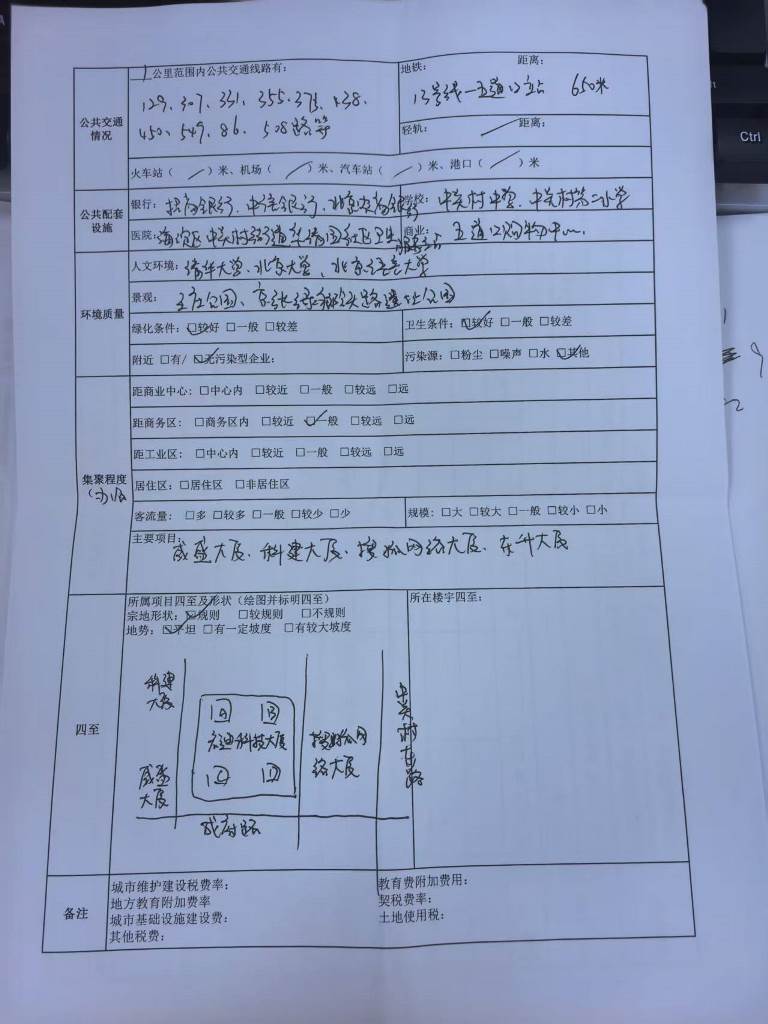 1公里范围内公共交通线路有:
129、307、331、355、375、438、
450、549、86、508路等
公共交通
情况
地铁: 距离:
13号线—五道口站 650米
轻轨: 距离:
火车站( )米、机场( )米、汽车站( )米、港口( )米
公共配套
设施
银行: 招商银行、中信银行、北京农商银行
学校: 中关村中学、中关村第二小学
医院: 海淀区中关村街道华清园社区卫生服务站
商业: 五道口购物中心
环境质量
人文环境: 清华大学、北京大学、北京语言大学
景观: 王庄公园、京张绿廊铁路遗址公园
绿化条件: ☑较好 □一般 □较差
卫生条件: ☑较好 □一般 □较差
附近 □有/ ☑无污染型企业:
污染源: □粉尘 □噪声 □水 ☑其他
集聚程度
(办公)
距商业中心: □中心内 □较近 □一般 □较远 □远
距商务区: □商务区内 □较近 ☑一般 □较远 □远
距工业区: □中心内 □较近 □一般 □较远 □远
居住区: □居住区 □非居住区
客流量: □多 □较多 □一般 □较少 □少
规模: □大 □较大 □一般 □较小 □小
主要项目:
威盛大厦、科建大厦、搜狐网络大厦、东升大厦
四至
所属项目四至及形状(绘图并标明四至)
宗地形状: ☑规则 □较规则 □不规则
地势: ☑平坦 □有一定坡度 □有较大坡度
所在楼宇四至:
科建
大厦
A B
启迪科技大厦
C D
搜狐网
络大厦
中关村东路
威盛
大厦
成府路
备注
城市维护建设税费率:
地方教育附加费率
城市基础设施建设费:
其他税费:
教育费附加费用:
契税费率:
土地使用税:
Ctrl